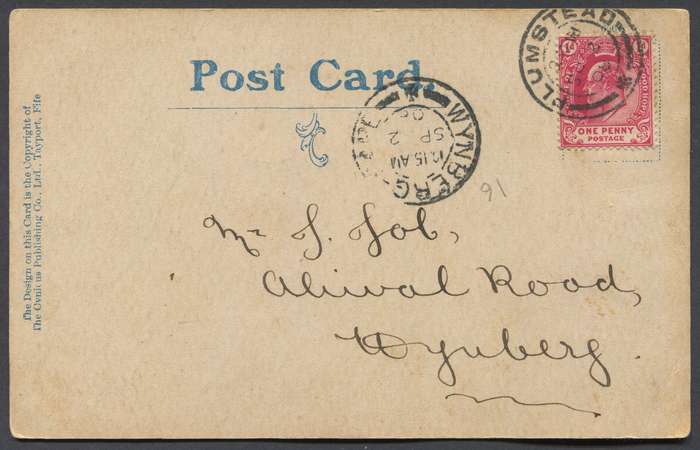 Post Card.
PLUMSTEAD
ONE PENNY
POSTAGE
WYNBERG
10.15 AM
SP 2
The Design on this Card is the Copyright of
The Cynicus Publishing Co., Ltd., Tayport, Fife
91
Mr J. Job,
Aliwal Road,
Wynberg.